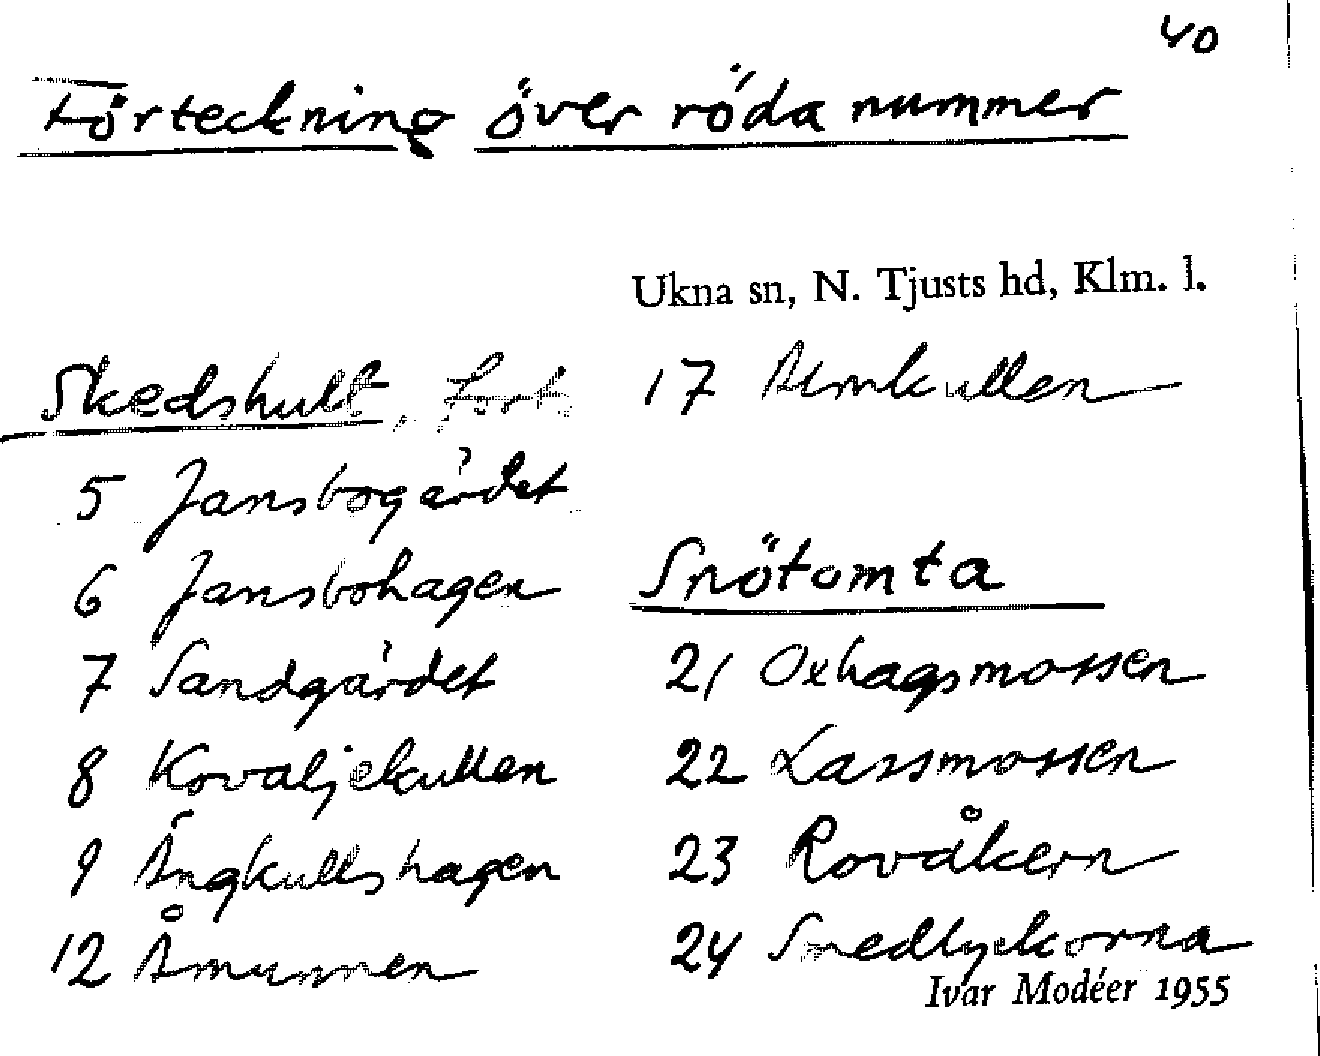 40
Förteckning över röda nummer
Ukna sn, N. Tjusts hd, Klm. l.
Skedshult, forts.
5 Jansbogärdet
6 Jansbohagen
7 Sandgärdet
8 Kovaljekullen
9 Ängkullshagen
12 Åmunnen
17 Almkullen
Snötomta
21 Oxhagsmossen
22 Lassmossen
23 Rovåkern
24 Smedlyckorna
Ivar Modéer 1955